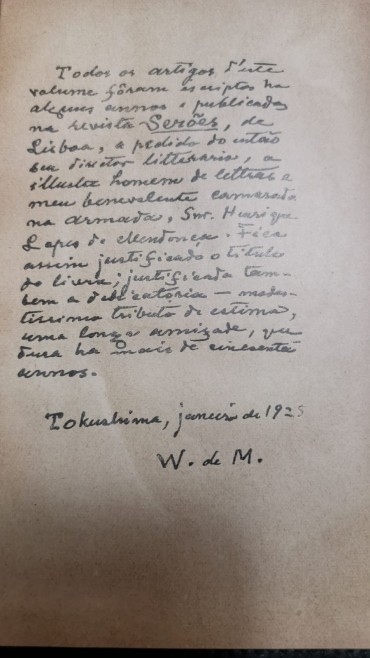 Todos os artigos d'este
volume fôram escriptos ha
alguns annos e publicados
na revista Serões, de
Lisboa, a pedido do então
seu director litterario, o
illustre homem de lettras e
meu benevolente camarada
na armada, Snr. Henrique
Lopes de Mendonça. Fica
assim justificado o titulo
do livro; justificada tam-
bem a dedicatoria — modes-
tissimo tributo de estima,
uma longa amizade, que
dura ha mais de cincoenta
annos.
Tokushima, janeiro de 1925
W. de M.